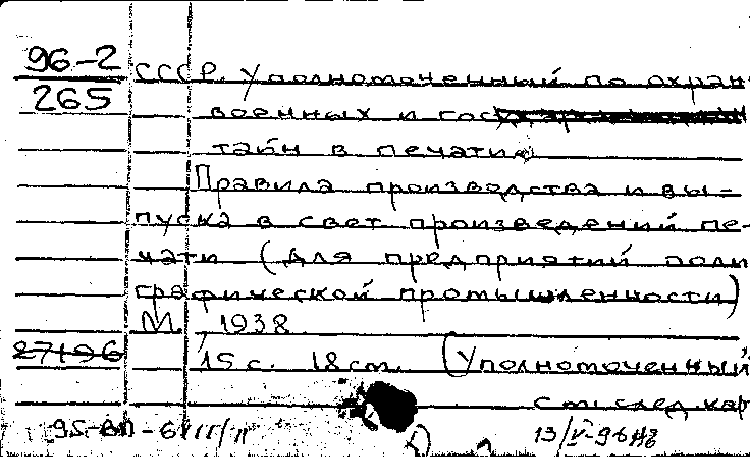 96-2
265
СССР. Уполномоченный по охран
военных и гос
тайн в печати
Правила производства и вы-
пуска в свет произведений пе-
чати (для предприятий поли
графической промышленности)
М., 1938.
27196
15 с. 18 cm. (Уполномоченный
См. след. кар
13/V-96